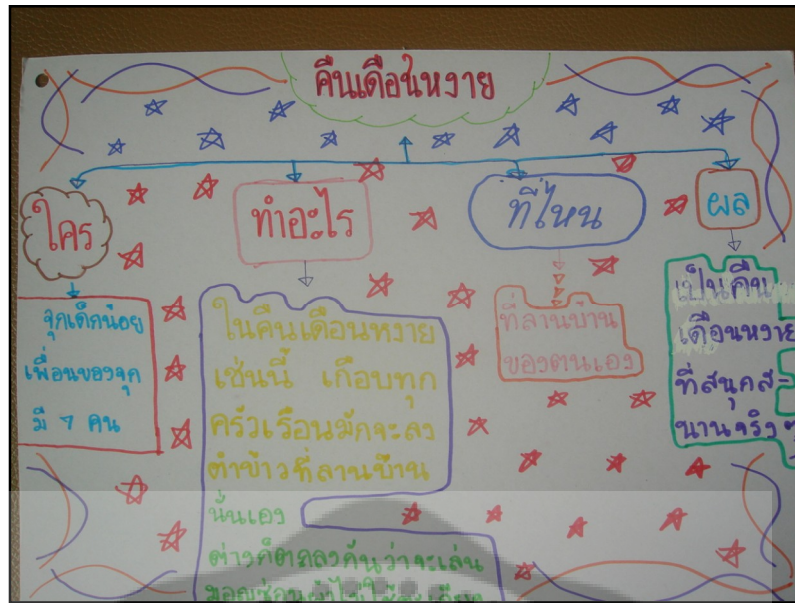 คืนเดือนหงาย
ใคร
ทำอะไร
ที่ไหน
ผล
จุกเด็กน้อย
เพื่อนของจุก
มี 7 คน
ในคืนเดือนหงาย
เช่นนี้ เกือบทุก
ครัวเรือนมักจะลง
ตำข้าวที่ลานบ้าน
นั่นเอง
ต่างก็ตกลงกันว่าจะเล่น
มอญซ่อนผ้า
ที่ลานบ้าน
ของตนเอง
เป็นคืน
เดือนหงาย
ที่สนุกส-
นานจริง ๆ